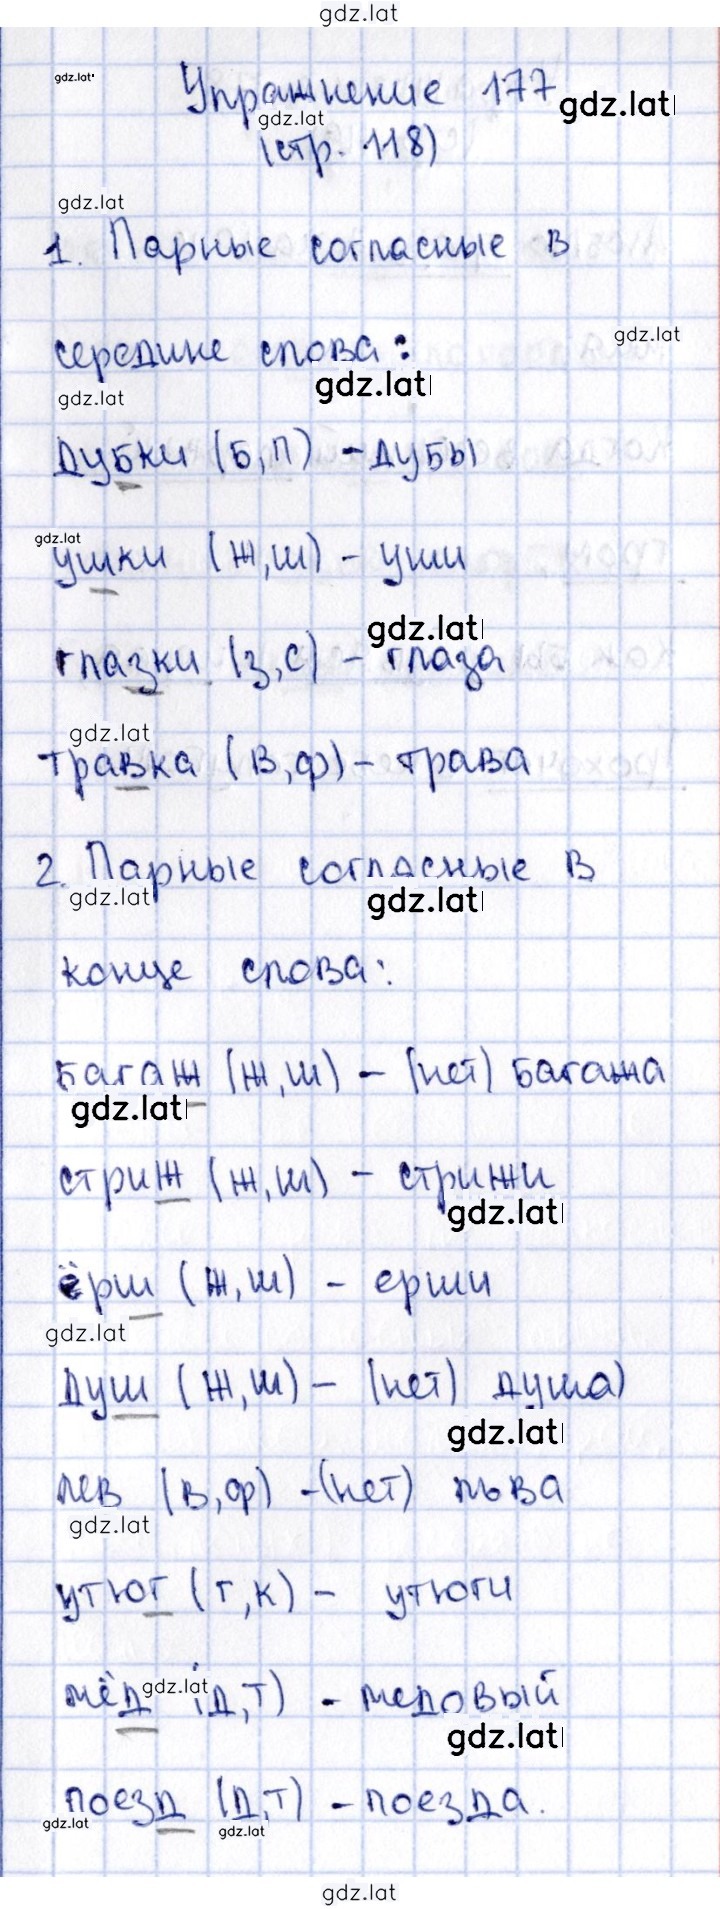 gdz.lat
gdz.lat
Упражнение 177
gdz.lat
gdz.lat
(стр. 118)
gdz.lat
1. Парные согласные в
gdz.lat
середине слова:
gdz.lat
gdz.lat
дубки (б,п) - дубы
gdz.lat
ушки (ж,ш) - уши
gdz.lat
глазки (з,с) - глаза
gdz.lat
травка (в,ф) - трава
2. Парные согласные в
gdz.lat
gdz.lat
конце слова:
багаж (ж,ш) - (нет) багажа
gdz.lat
стриж (ж,ш) - стрижи
gdz.lat
ёрш (ж,ш) - ерши
gdz.lat
душ (ж,ш) - (нет) душа)
gdz.lat
лев (в,ф) - (нет) льва
gdz.lat
утюг (г,к) - утюги
gdz.lat
мёд (д,т) - медовый
gdz.lat
поезд (д,т) - поезда.
gdz.lat
gdz.lat
gdz.lat